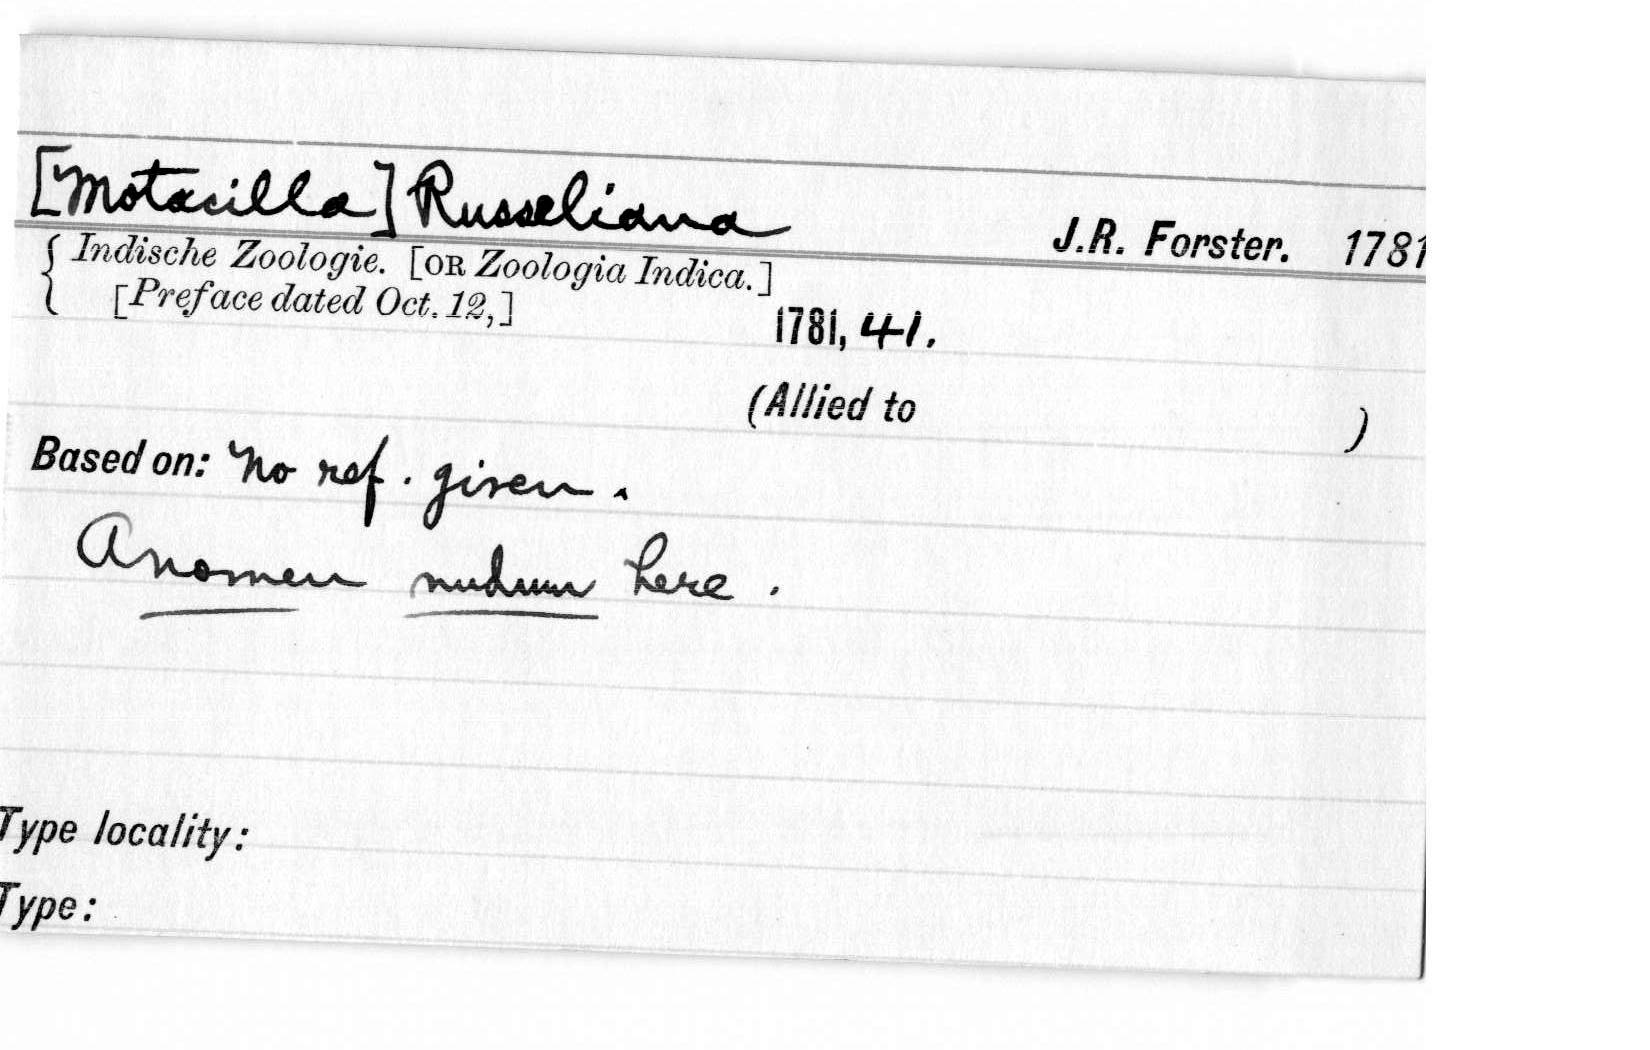 [Motacilla] Russeliana J.R. Forster. 1781
{ Indische Zoologie. [OR Zoologia Indica.]
[Preface dated Oct. 12,]
1781, 41.
(Allied to )
Based on: No ref. given.
A nomen nudum here.
Type locality:
Type: